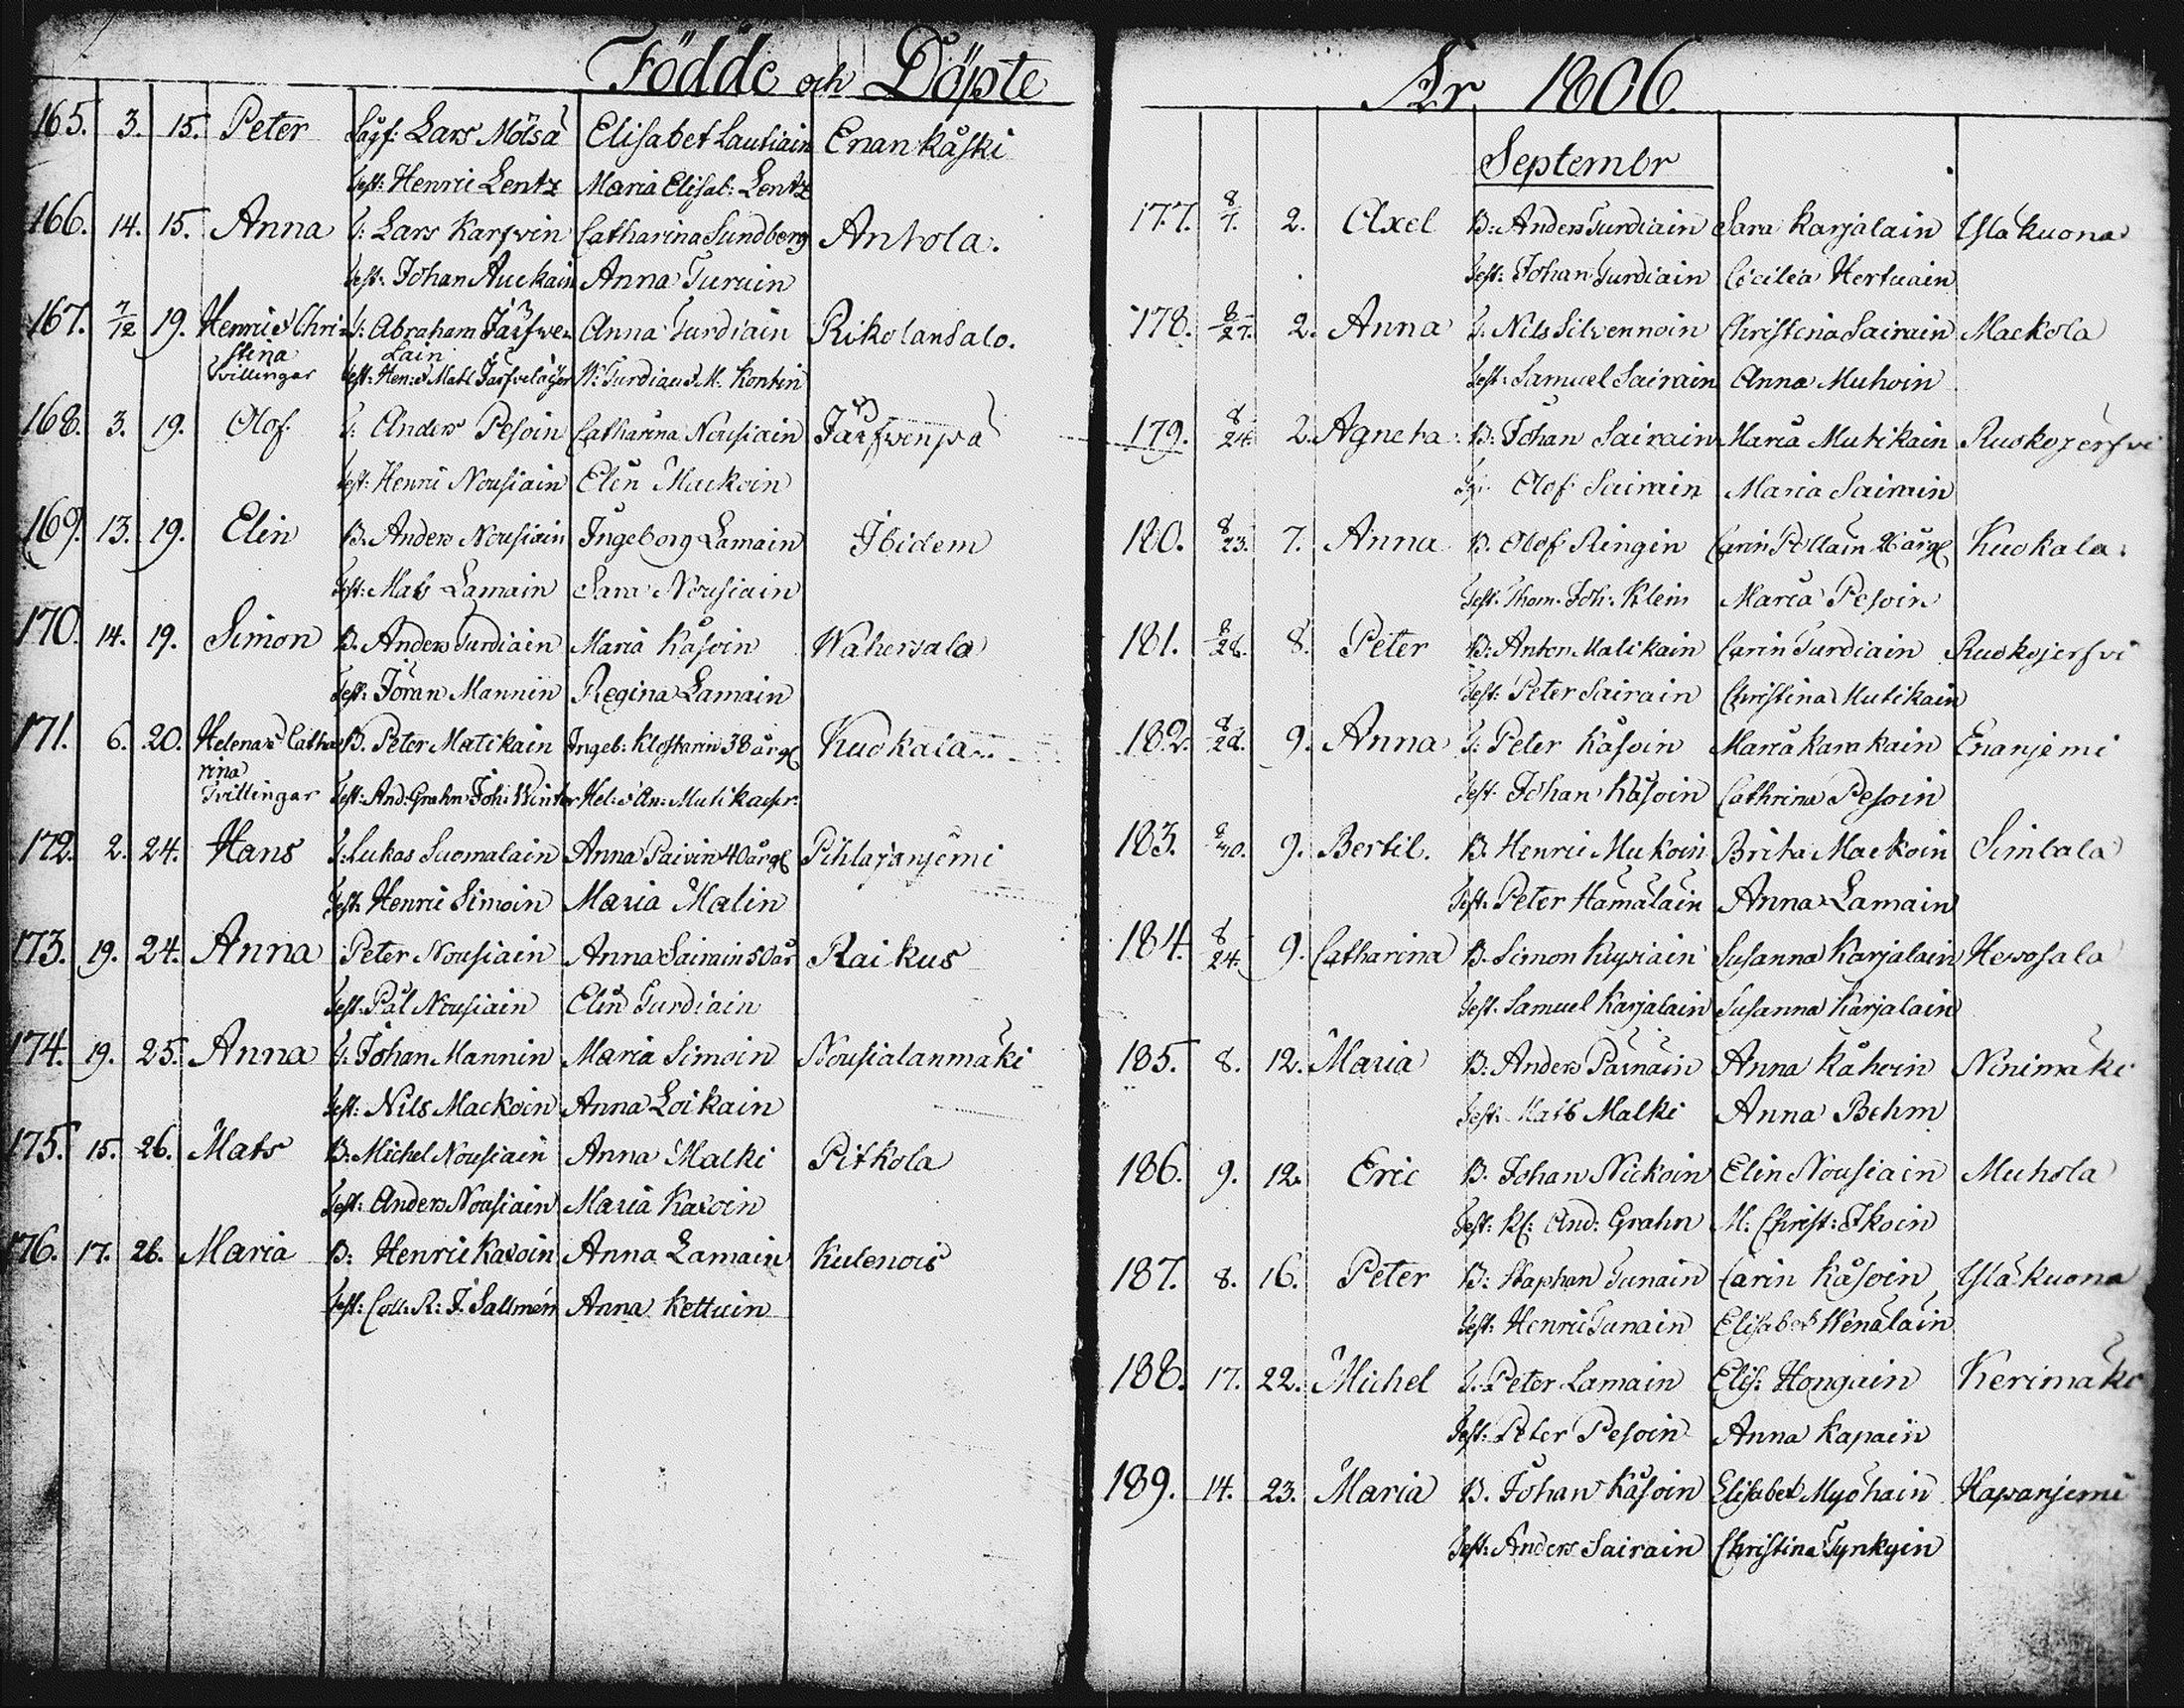 Födde och Döpte
165. 3. 15. Peter Lars Mölsä Elisabet Lautiain Enankåski
Test: Henric Lentz Maria Elisab: Lentz
166. 14. 15. Anna T: Lars Karfvin Catharina Sundberg Antola.
Test: Johan Auekain Anna Turuin
167. 7/12 19. Henric & Chri- T: Abraham Järfve- Anna Turdiain Rikolansalo.
stina lain
Tvillingar Test: Hen: & Matt W: Turdiain M: Kontin
168. 3. 19. Olof T: Anders Pesoin Catharina Nousiain Järfvenpä
Test: Henric Nousiain Elin Muckoin
169. 13. 19. Elin B. Anders Nousiain Ingeborg Lamain Ibidem
Test: Mats Lamain Sara Nousiain
170. 14. 19. Simon B. Anders Turdiain Maria Kåsoin Wahersalo
Test: Jöran Mannin Regina Lamain
171. 6. 20. Helena & Catha B. Peter Matikain Ingeb: Klostarin 38 årg Kuokala.
rina
Tvillingar Test: And: Grahn Joh: Winter Hel: & An: Mutikaisr
172. 2. 24. Hans T: Lukas Suomalain Anna Paivin 40 årg Pihlajanjemi
Test: Henric Simoin Maria Malin
173. 19. 24. Anna Peter Nousiain Anna Sairain 50 år Raikus
Test: Pål Nousiain Elin Turdiain
174. 19. 25. Anna T: Johan Mannin Maria Simoin Nousialanmäki
Test: Nils Mackoin Anna Loikain
175. 15. 26. Mats B: Michel Nousiain Anna Malki Pitkola
Test: Anders Nousiain Maria Kaxoin
176. 17. 26. Maria B: Henric Kaxoin Anna Lamain Kulenois
Test: Coll: R: J. Sallmén Anna Kettuin
År 1806.
Septembr
177. 8/7. 2. Axel B: Anders Turdiain Sara Karjalain Yläkuona
Test: Johan Turdiain Cecilia Hertuain
178. 8/27. 2. Anna T: Nils Silvennoin Christina Sairain Mackola
Test: Samuel Sairain Anna Muhoin
179. 8/24 2. Agneta B: Johan Sairain Maria Mutikain Ruokojerfvi
Olof Sairain Maria Sairain
180. 8/23. 7. Anna B. Olof Ringin Carin Pollain 26 årg Kuokala.
Test: Thom. Joh: Klem Maria Pesoin
181. 8/28. 8. Peter B: Anton Malikain Carin Turdiain Ruokojerfvi
Test: Peter Sairain Christina Mutikain
182. 8/28. 9. Anna T: Peter Kåsoin Maria Karakain Enanjemi
Test: Johan Kåsoin Cathrina Pesoin
183. 9. Bertil. B. Henric Mukoin Brita Mackoin Simbala
Test: Peter Hämäläin Anna Lamain
184. 8/24. 9. Catharina B. Simon Kuysiain Susanna Karjalain Hevosala
Test: Samuel Karjalain Susanna Karjalain
185. 8. 12. Maria B. Anders Pärnäin Anna Kåhoin Ninimäki
Test: Mats Malki Anna Behm
186. 9. 12. Eric B. Johan Nickoin Elin Nousiain Muhola
Test: Kl: And: Grahn M: Christ: Ikoin
187. 8. 16. Peter B: Staphan Tunain Carin Kåsoin Yläkuona
Test: Henric Tunain Elisabet Wenäläin
188. 17. 22. Michel T: Peter Lamain Elis: Hongain Kerimäki
Test: Peter Pesoin Anna Kapain
189. 14. 23. Maria B. Johan Kåsoin Elisabet Myöhain Hapanjemi
Test: Anders Sairain Christina Tynkyin